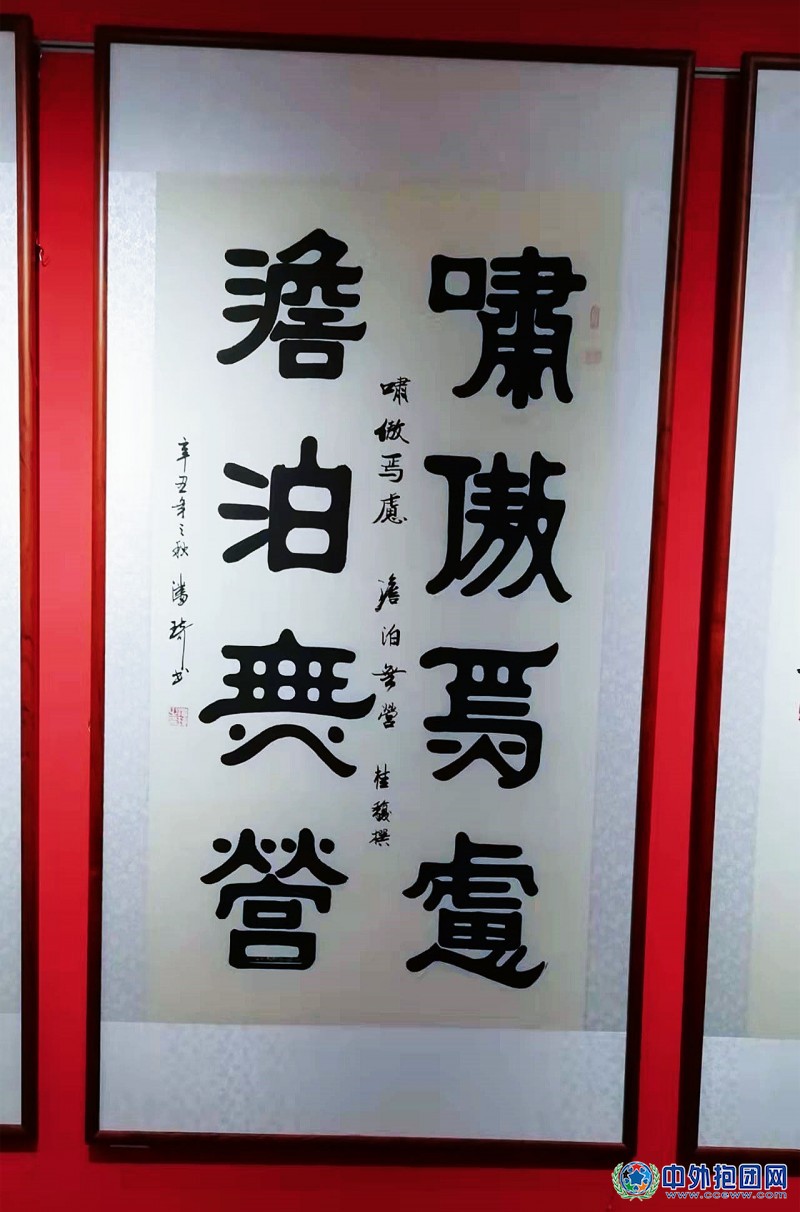 啸傲焉慮
澹泊無營
嘯傲焉慮 澹泊無營 桂馥撰
辛丑年之秋 潘琦书
中外抱团网
www.cceww.com